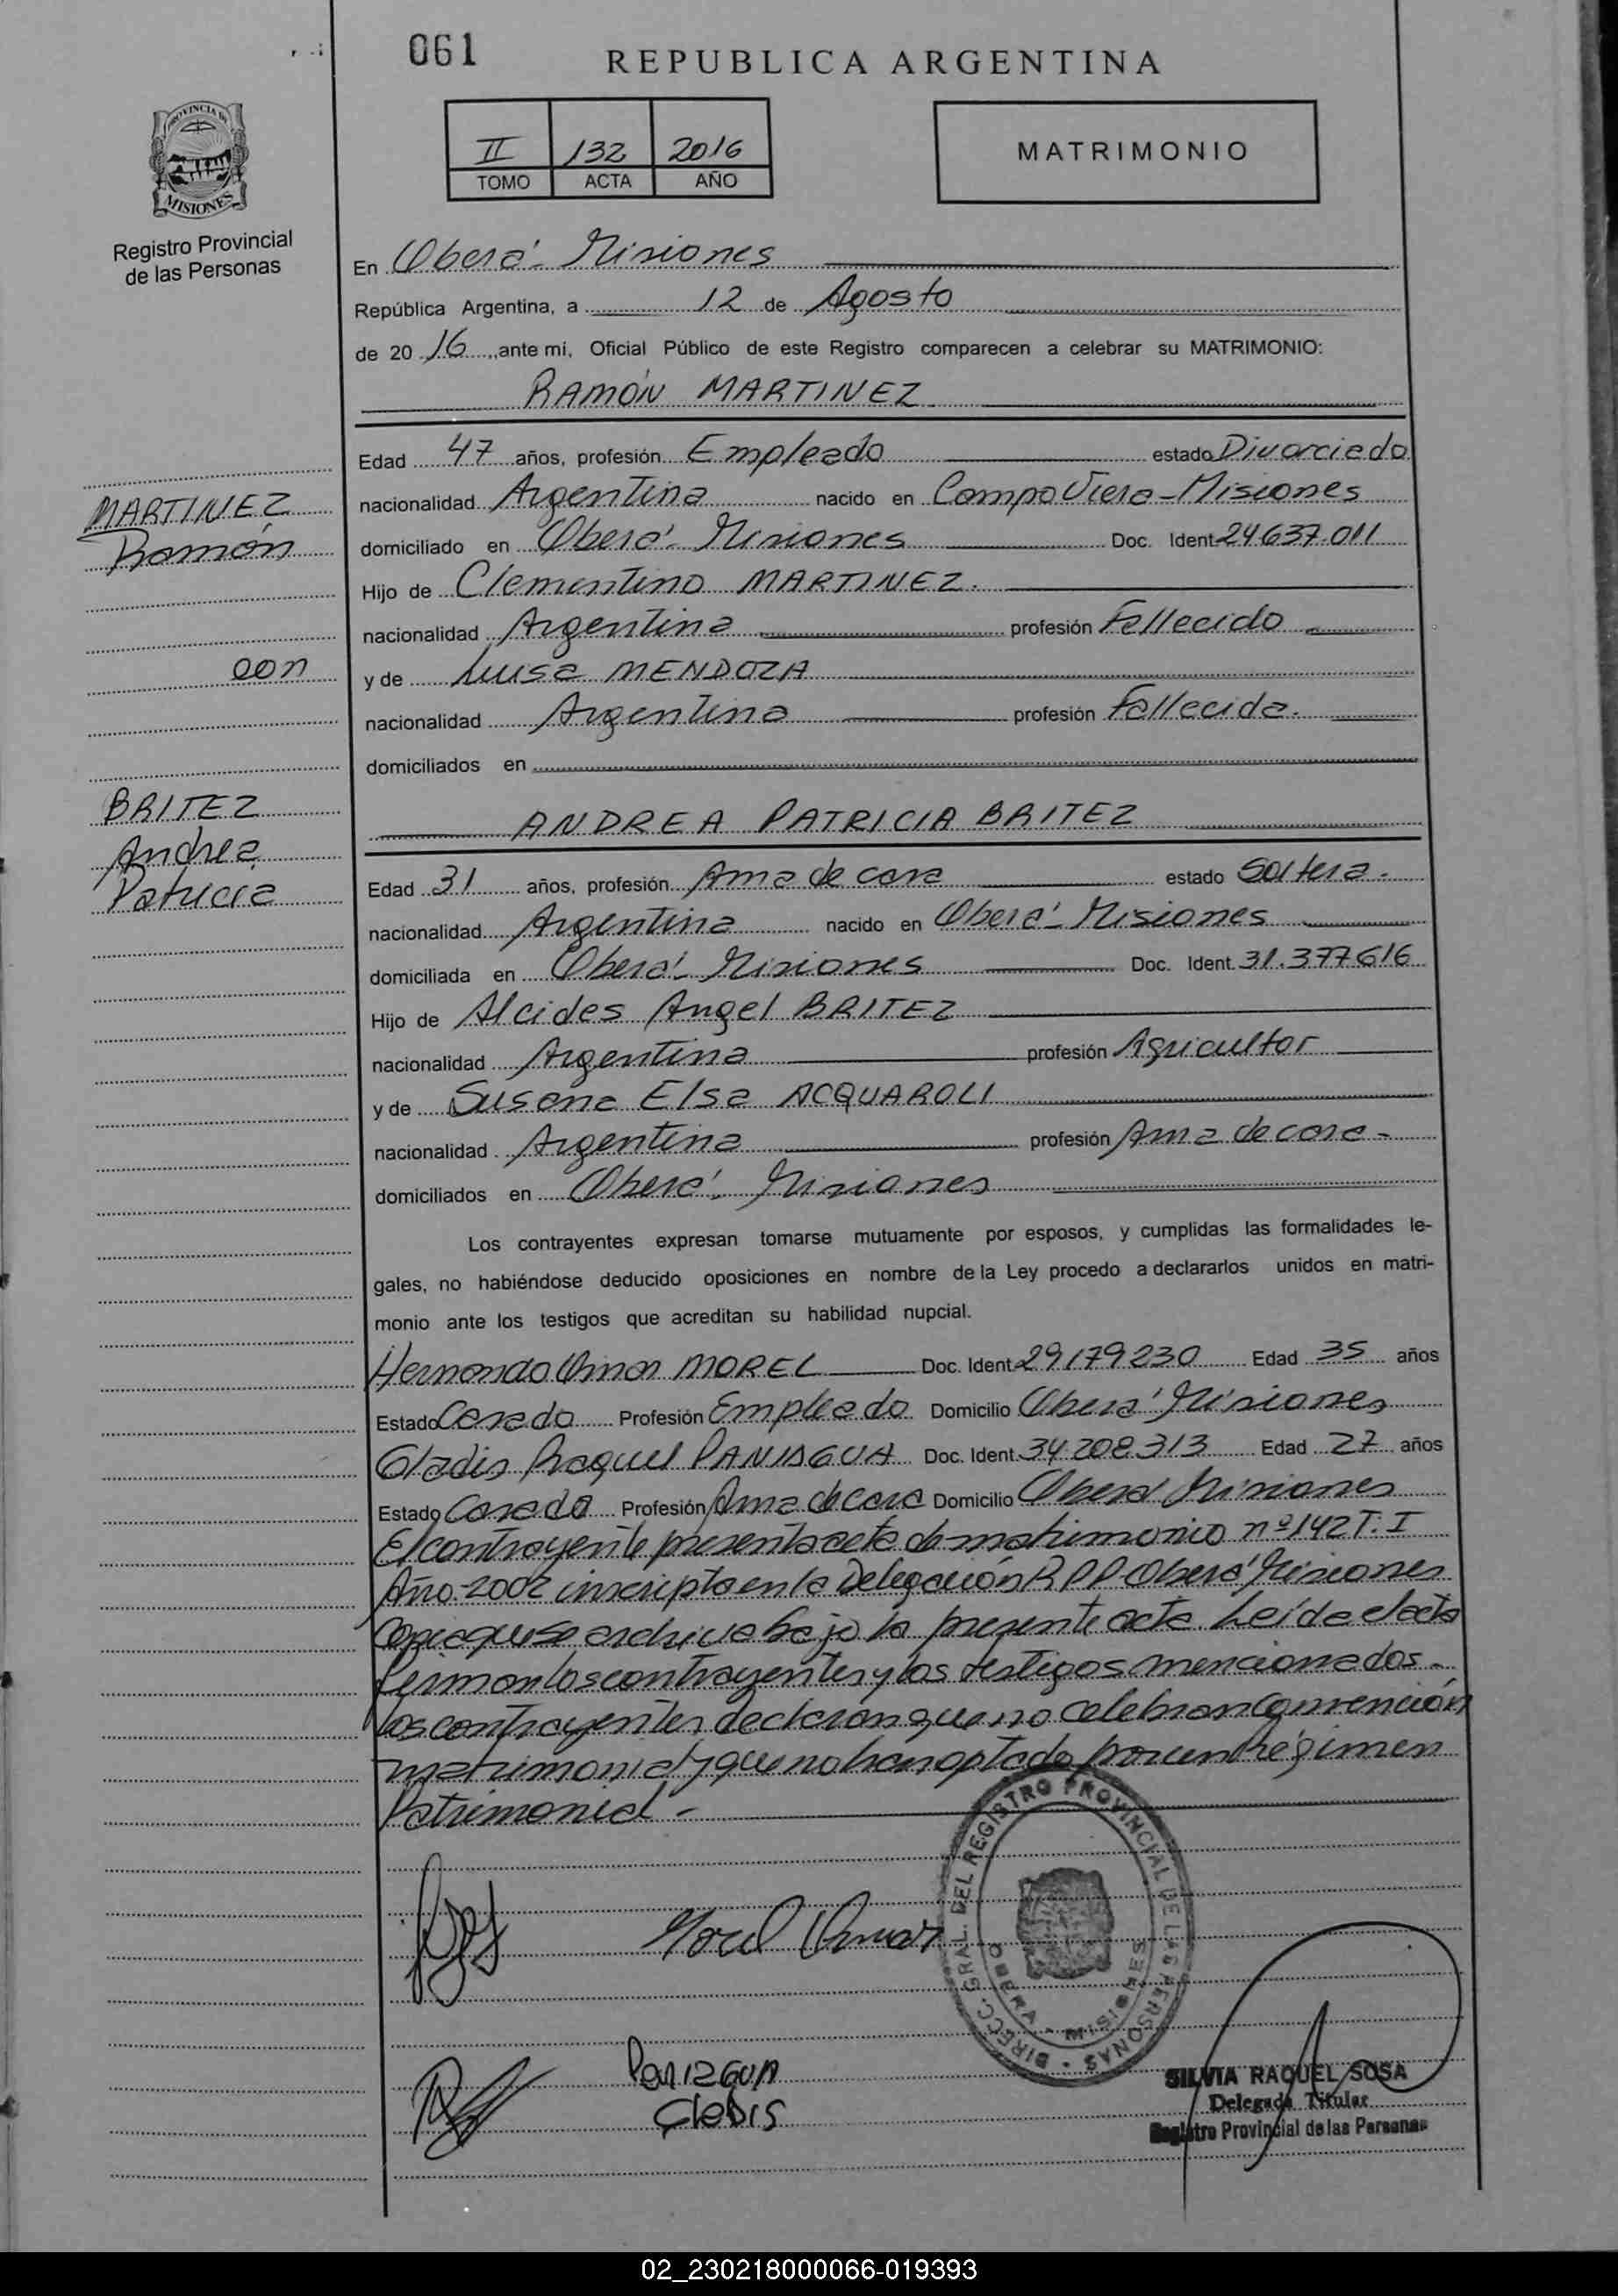 061
REPUBLICA ARGENTINA
PROVINCIA DE
MISIONES
Registro Provincial
de las Personas
II 132 2016
TOMO ACTA AÑO
MATRIMONIO
En Oberá - Misiones
República Argentina, a 12 de Agosto
de 20 16, ante mi, Oficial Público de este Registro comparecen a celebrar su MATRIMONIO:
RAMÓN MARTINEZ
Edad 47 años, profesión Empleado estado Divorciado
nacionalidad Argentina nacido en Campo Viera - Misiones
domiciliado en Oberá - Misiones Doc. Ident 24.637.011
Hijo de Clementino MARTINEZ.
nacionalidad Argentina profesión Fallecido
y de Luisa MENDOZA
nacionalidad Argentina profesión Fallecida.
domiciliados en
MARTINEZ
Ramón
con
BRITEZ
Andrea
Patricia
ANDREA PATRICIA BRITEZ
Edad 31 años, profesión Ama de casa estado Soltera.
nacionalidad Argentina nacido en Oberá - Misiones
domiciliada en Oberá - Misiones Doc. Ident. 31.377.616
Hijo de Alcides Angel BRITEZ
nacionalidad Argentina profesión Agricultor
y de Susana Elsa ACQUAROLI
nacionalidad Argentina profesión Ama de casa -
domiciliados en Oberá - Misiones
Los contrayentes expresan tomarse mutuamente por esposos, y cumplidas las formalidades le-
gales, no habiéndose deducido oposiciones en nombre de la Ley procedo a declararlos unidos en matri-
monio ante los testigos que acreditan su habilidad nupcial.
Hernando Omar MOREL Doc. Ident 29179230 Edad 35 años
Estado Casado Profesión Empleado Domicilio Oberá Misiones
Gladis Raquel PANIAGUA Doc. Ident. 34.208.313 Edad 27 años
Estado Casada Profesión Ama de casa Domicilio Oberá Misiones
El contrayente presenta acta de matrimonio nº 142 T. I
Año - 2002 inscripta en la Delegación R.P.P. Oberá Misiones
Copia que se archiva bajo la presente acta. Leída el acta
firman los contrayentes y los testigos mencionados -
los contrayentes declaran que no celebran Convención
matrimonial y que no han optado por un Régimen
Patrimonial -
Morel Omar
DIRECC. GRAL. DEL REGISTRO PROVINCIAL DE LAS PERSONAS
OBERA - MISIONES
PANIAGUA
GLADIS
SILVIA RAQUEL SOSA
Delegada Titular
Registro Provincial de las Personas
02_230218000066-019393